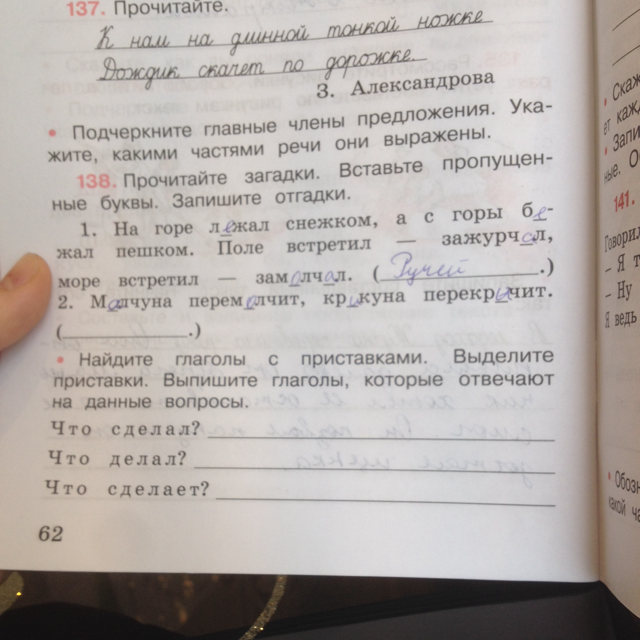 137. Прочитайте.
К нам на длинной тонкой ножке
Дождик скачет по дорожке.
З. Александрова
• Подчеркните главные члены предложения. Ука-
жите, какими частями речи они выражены.
138. Прочитайте загадки. Вставьте пропущен-
ные буквы. Запишите отгадки.
1. На горе лежал снежком, а с горы бе-
жал пешком. Поле встретил — зажурчал,
море встретил — замолчал. (Ручей.)
2. Молчуна перемолчит, крикуна перекричит.
(.)
• Найдите глаголы с приставками. Выделите
приставки. Выпишите глаголы, которые отвечают
на данные вопросы.
Что сделал?
Что делал?
Что сделает?
62
• Скаж
ет кажд
• Запи
ные. О
141.
Говорил
– Я т
– Ну
Я ведь
• Обозн
какой ча